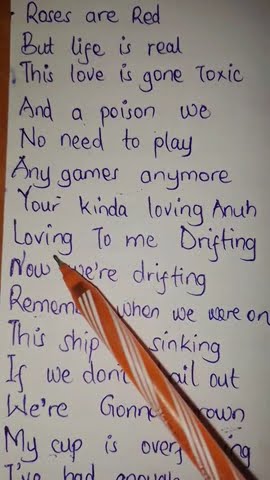 Roses are Red
But life is real
This love is gone Toxic
And a poison we
No need to play
Any games anymore
Your kinda loving Anuh
Loving To me Drifting
Now we're drifting
when we were on
This ship sinking
If we out
We're
My cup is
I've had